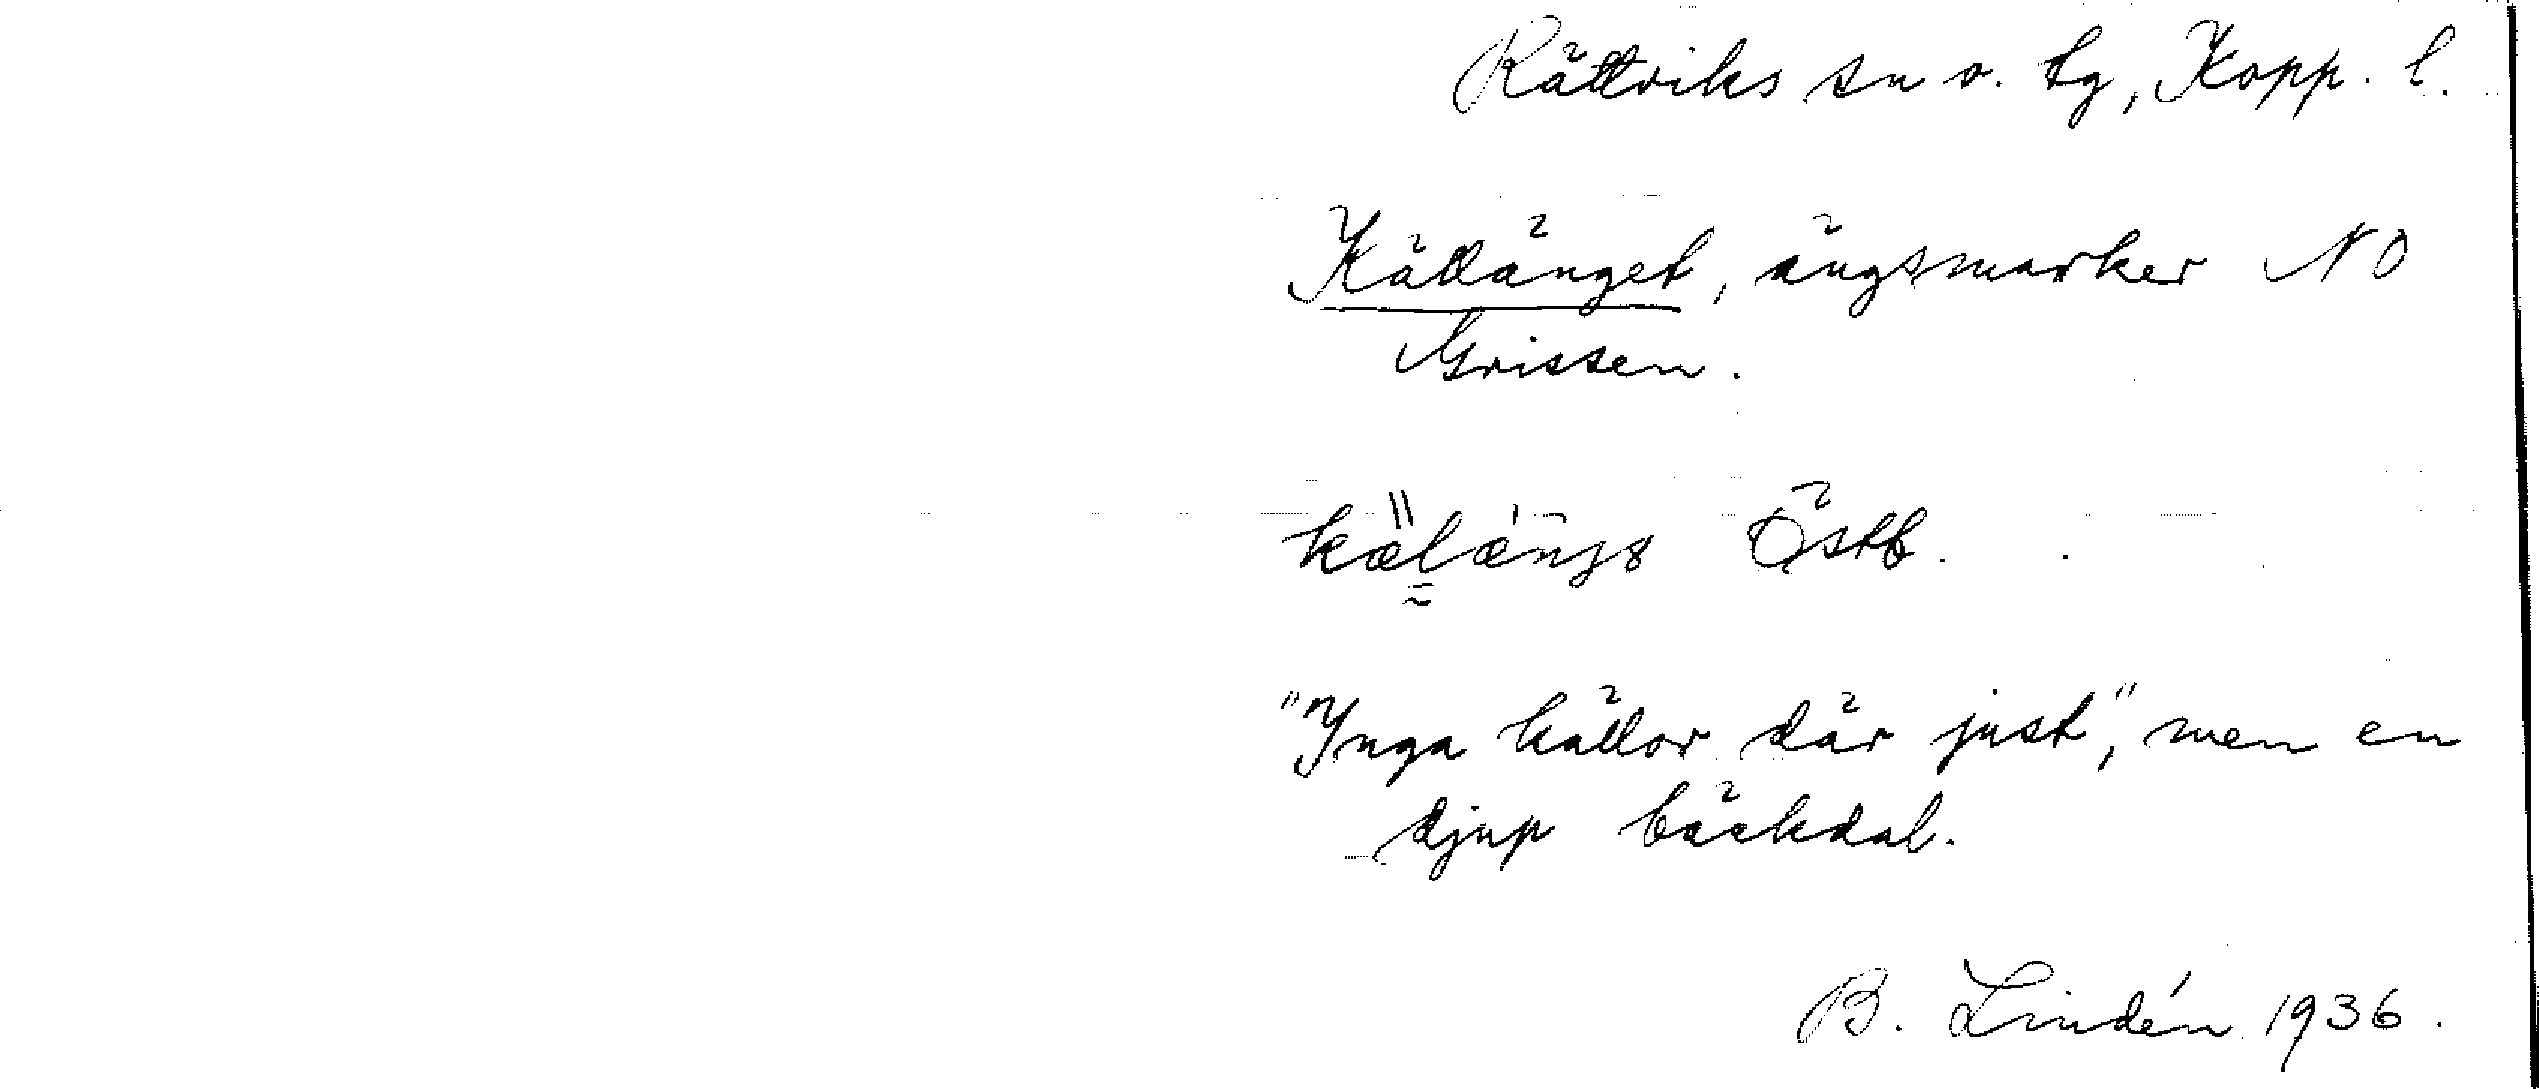 Rättviks sn o. tg, Kopp. l.
Källänget, ängsmarker NO
Grissen.
Östb.
"Inga källor där just", men en
djup bäckdal.
B. Lindén 1936.